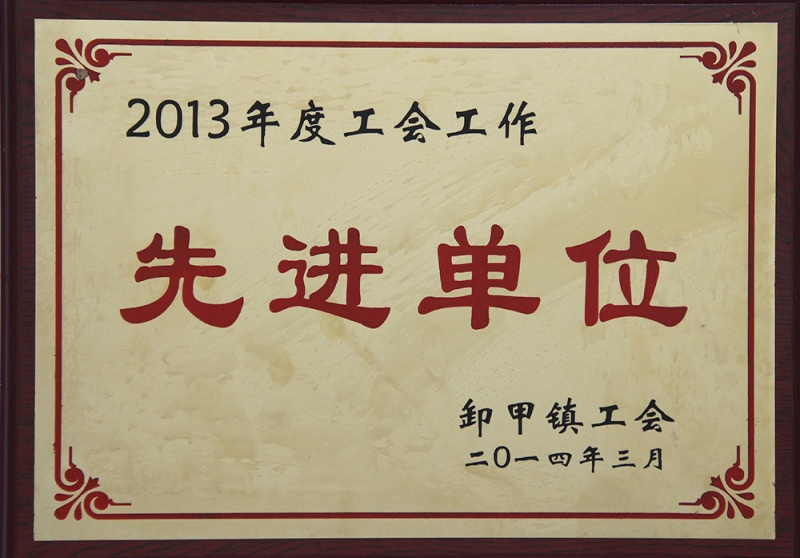 2013年度工会工作
先进单位
卸甲镇工会
二0一四年三月